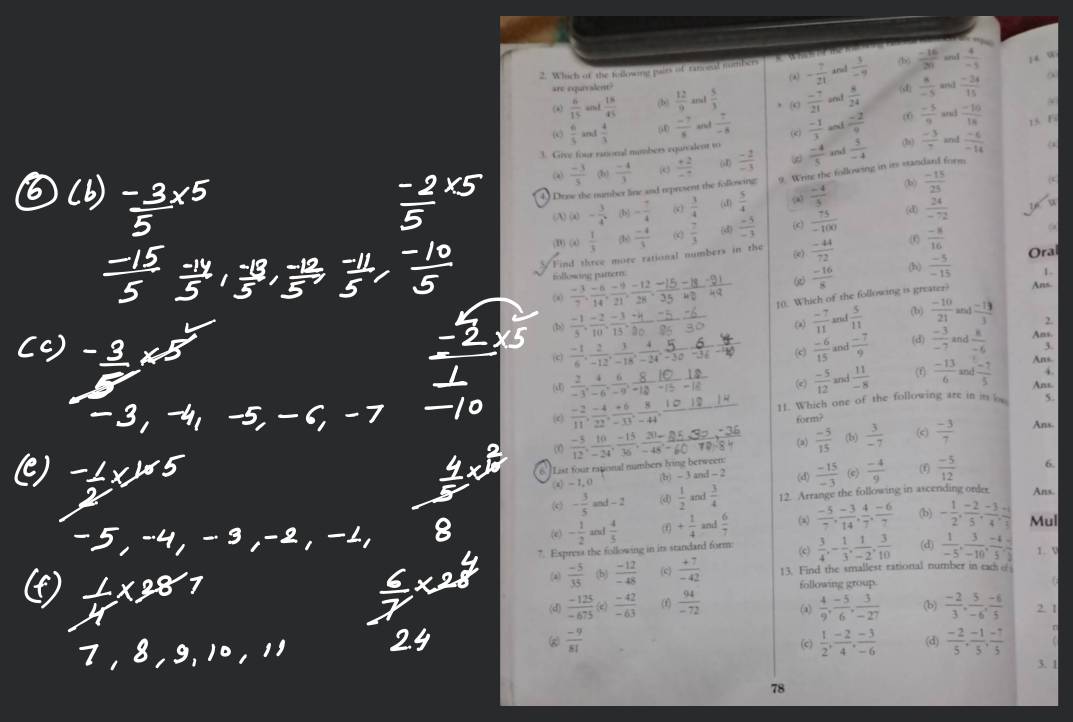 6 (b) -3/5 ×5 -2/5 ×5
-15/5 -14/5, -13/5, -12/5, -11/5, -10/5
(c) -3/5 ×5 -2/1 ×5
-3, -4, -5, -6, -7 -10
(e) -1/2 ×10 5 4/5 ×10 2
-5, -4, -3, -2, -1, 8
(f) 1/4 ×28 7 6/7 ×28 4
7, 8, 9, 10, 11 24
2. Which of the following pairs of rational numbers
are equivalent?
(a) 6/15 and 18/45 (b) 12/9 and 5/3
(c) 6/5 and 4/3 (d) -7/8 and 7/-8
3. Give four rational numbers equivalent to
(a) -3/5 (b) -4/3 (c) +2/-7 (d) -2/-3
4. Draw the number line and represent the following:
(A) (a) -3/4 (b) -7/4 (c) 3/4 (d) 5/4
(B) (a) 1/3 (b) -4/3 (c) 7/3 (d) -5/-3
5. Find three more rational numbers in the
following pattern:
(a) -3/7, -6/14, -9/21, -12/28,
(b) -1/5, -2/10, -3/15, -4/20 -5/25 -6/30
(c) -1/6, 2/-12, 3/-18, 4/-24,
(d) 2/-3, 4/-6, 6/-9,
(e) -2/11, -4/22, +6/-33, 8/-44,
(f) -5/12, 10/-24, -15/36, 20/-48,
6. List four rational numbers lying between:
(a) -1, 0 (b) -3 and -2
(c) -3/5 and -2 (d) 1/2 and 3/4
(e) -1/2 and 4/5 (f) +1/4 and 6/7
7. Express the following in its standard form:
(a) -5/35 (b) -12/-48 (c) +7/-42
(d) -125/-675 (e) -42/-63 (f) 94/-72
(g) -9/81
(a) -7/21 and 3/-9 (b) -16/20 and 4/-5
(c) -7/21 and 8/24 (d) 8/-5 and -24/15
(e) -1/3 and -2/9 (f) -5/9 and -10/18
(g) -4/5 and 5/-4 (h) -3/7 and -6/-14
9. Write the following in its standard form
(a) -4/5 (b) -15/25
(c) 75/-100 (d) 24/-72
(e) -44/72 (f) -8/16
(g) -16/8 (h) -5/-15
10. Which of the following is greater?
(a) -7/11 and 5/11 (b) -10/21 and
(c) -6/15 and -7/9 (d) -3/-7 and 8/-6
(e) -5/12 and 11/-8 (f) -13/6 and -7/5
11. Which one of the following are in its
form?
(a) -5/15 (b) 3/-7 (c) -3/7
(d) -15/-3 (e) -4/9 (f) -5/12
12. Arrange the following in ascending order.
(a) -5/7, -3/14, 4/7, -6/7 (b) -1/2, -2/5, -3/4,
(c) 3/4, -1/3, 1/-2, 3/10 (d) 1/-5, 3/-10, -4/5
13. Find the smallest rational number in each of
following group.
(a) 4/9, -5/3, 3/-27 (b) -2/3, 5/-6, -6/5
(c) 1/2, -2/4, -3/-6 (d) -2/5, -1/5, -7/5
78
14.
15.
16.
Oral
1.
Ans.
2.
Ans.
3.
Ans.
4.
Ans.
5.
Ans.
6.
Ans.
Mul
1.
2.
3.